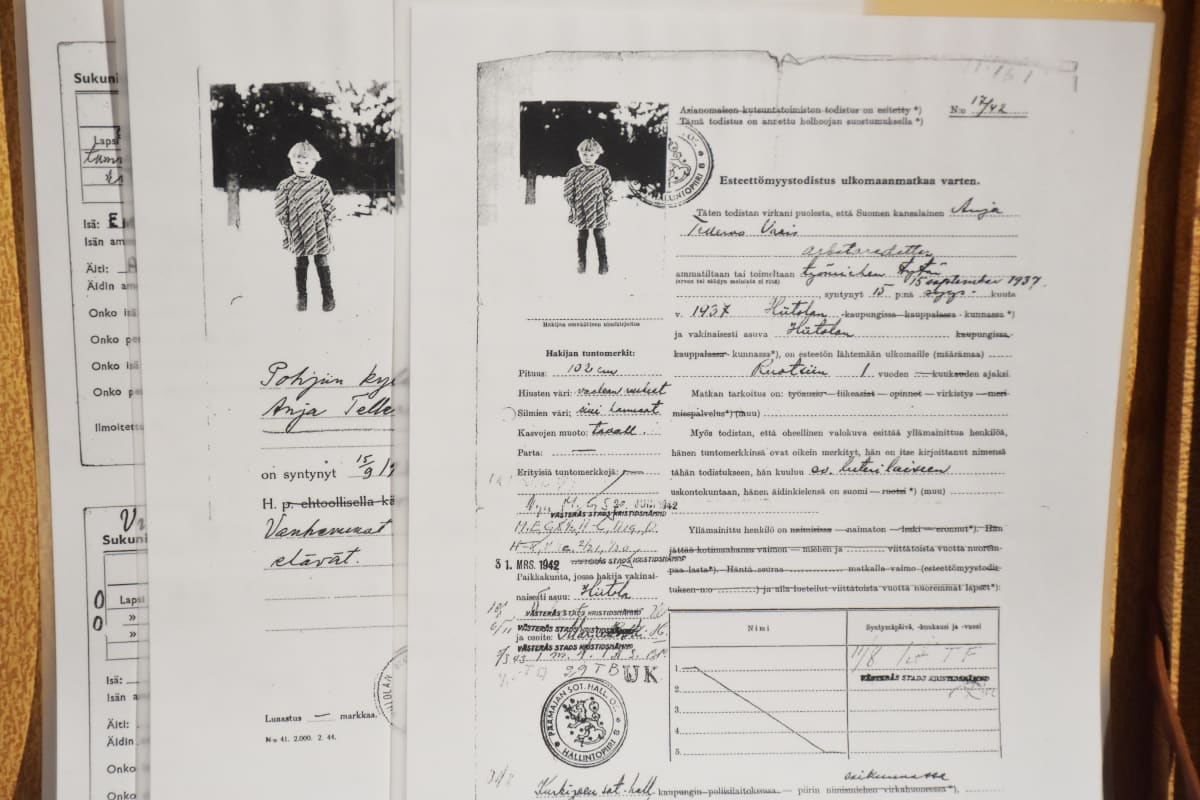 Sukuni
Lapsi
Isä:
Isän am
Äiti:
Äidin am
Onko isä
Onko pe
Onko isä
Onko pe
Ilmoitettu
Sukuni
0 Lapsi
0 »
»
Isä:
Isän a
Äiti:
Äidin
Onko
Onko
Pohjiin kyl
Anja Telle
on syntynyt 15/9 19
H. p. ehtoollisella kä
Vanhemmat
elävät.
Lunastus — markkaa.
N:o 41. 2.000. 2. 44.
Asianomaisen kutsuntatoimiston todistus on esitetty *)
Tämä todistus on annettu holhoojan suostumuksella *)
N:o 17/42
HALLINTOPIIRI
Esteettömyystodistus ulkomaanmatkaa varten.
Täten todistan virkani puolesta, että Suomen kansalainen Anja
Tellervo Varis
ammatiltaan tai toimeltaan työmiehen tytär
(arvon tai säädyn mainista ei riitä)
15 september 1937.
syntynyt 15 p:nä syys- kuuta
v. 1937 Hiitolan kaupungissa kauppalassa kunnassa *)
ja vakinaisesti asuva Hiitolan kaupungissa,
kauppalassa kunnassa*), on esteetön lähtemään ulkomaille (määrämaa)
Ruotsiin 1 vuoden — kuukauden ajaksi.
Matkan tarkoitus on: työansio — liikeasiat — opinnot — virkistys — meri
miespalvelus*) (muu)
Myös todistan, että oheellinen valokuva esittää yllämainittua henkilöä,
hänen tuntomerkkinsä ovat oikein merkityt, hän on itse kirjoittanut nimensä
tähän todistukseen, hän kuuluu ev. luterilaiseen
uskontokuntaan, hänen äidinkielensä on suomi — ruotsi *) (muu)
Yllämainittu henkilö on naimisissa — naimaton — leski — eronnut*). Hän
jättää kotimaahansa vaimon — miehen ja viittätoista vuotta nuorem-
paa lasta*). Häntä seuraa matkalle vaimo (esteettömyystodis-
tuksen n:o ) ja alla luetellut viittätoista vuotta nuoremmat lapset*):
Hakijan omakätinen nimikirjoitus
Hakijan tuntomerkit:
Pituus: 102 cm
Hiusten väri: vaalean
Silmien väri: sini
Kasvojen muoto: tavall.
Parta: —
Erityisiä tuntomerkkejä: —
VÄSTERÅS STADS KRISTIDSNÄMND
VÄSTERÅS STADS KRISTIDSNÄMND
31. MRS. 1942
Paikkakunta, jossa hakija vakinai-
naisesti asuu: Hiitola
VÄSTERÅS STADS KRISTIDSNÄMND
VÄSTERÅS STADS KRISTIDSNÄMND
ja osoite:
VÄSTERÅS STADS KRISTIDSNÄMND
29 TB UK
PÄÄMAJAN SOT. HALL. O.
HALLINTOPIIRI
Nimi
Syntymäpäivä, -kuukausi ja -vuosi
1.
2.
3.
4.
5.
VÄSTERÅS STADS KRISTIDSNÄMND
Kurkijoen sot. hall. kaupungin poliisilaitoksessa — piirin nimismiehen virkahuoneessa*),